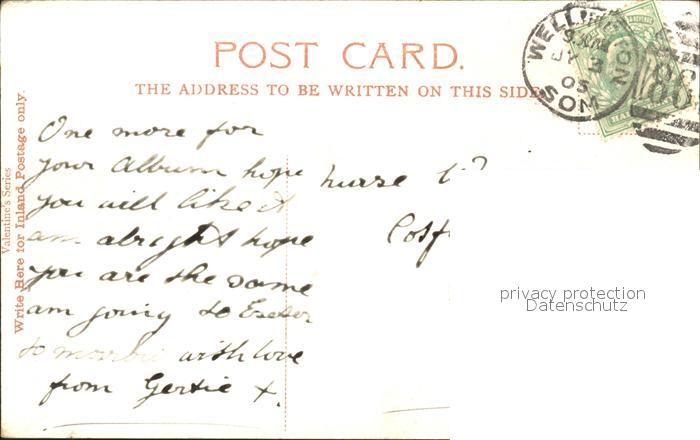 POST CARD.
THE ADDRESS TO BE WRITTEN ON THIS SIDE
WELLINGTON
JY 3
05
SOM
Valentine's Series
Write Here for Inland Postage only.
One more for
your album hope
you will like it
am alright hope
you are the same
am going to Exeter
to morrow with love
from Gertie X.
nurse
privacy protection
Datenschutz